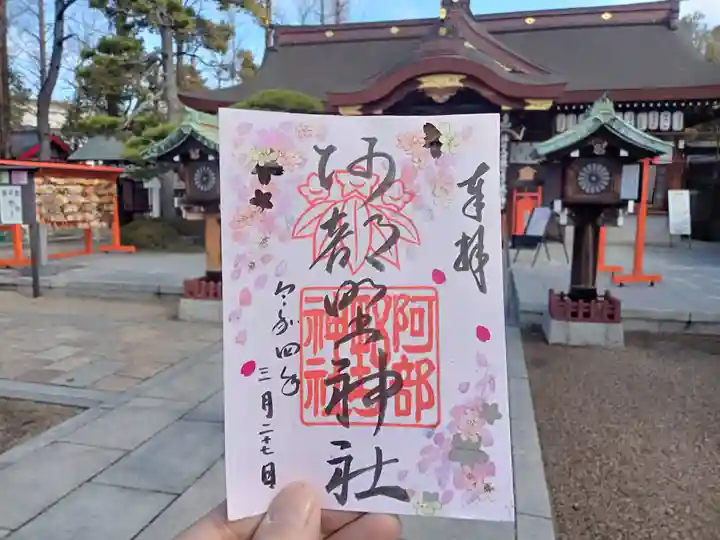 奉拝
阿部野神社
阿部
神社
令和四年
三月二十七日